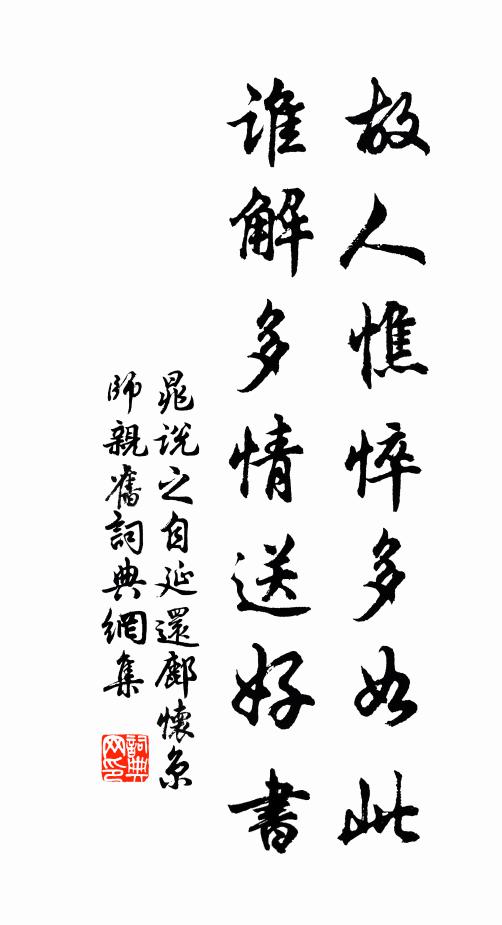 故人憔悴多如此
谁解多情送好書
晁说之自延還鄜懷京
師親舊詞典網集
詞典
网印